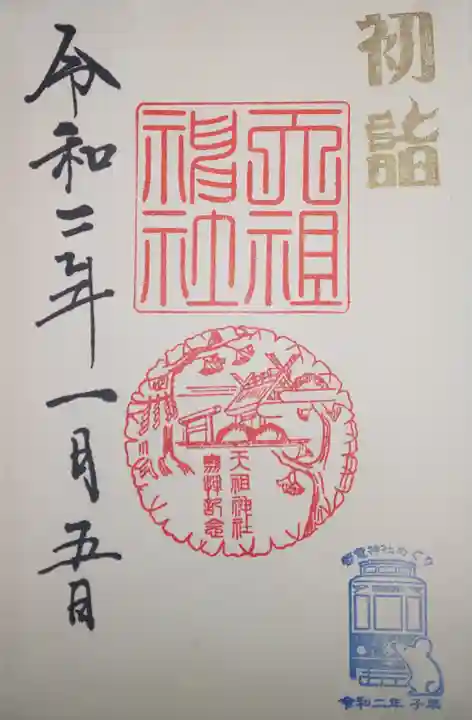 初詣
天祖
神社
天祖神社
参拝記念
令和二年一月五日
都電神社めぐり
令和二年 子歳